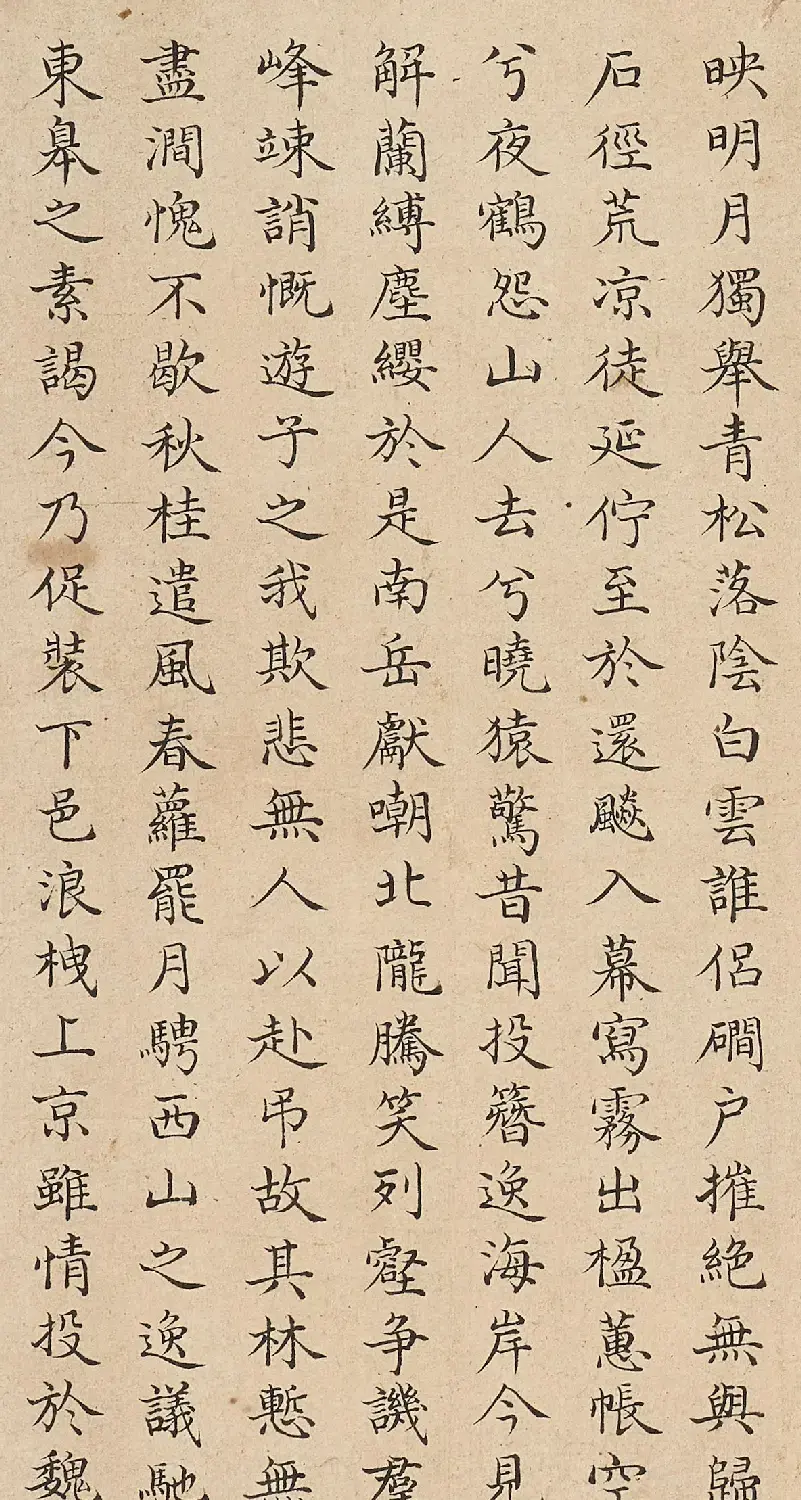 映明月獨舉青松落陰白雲誰侶磵户摧絶無與歸
石徑荒凉徒延佇至於還飈入幕寫霧出楹蕙帳空
兮夜鶴怨山人去兮曉猿驚昔聞投簪逸海岸今見
解蘭縛塵纓於是南岳獻嘲北隴騰笑列壑争譏羣
峰竦誚慨遊子之我欺悲無人以赴吊故其林慙無
盡澗愧不歇秋桂遣風春蘿罷月騁西山之逸議馳
東皋之素謁今乃促裝下邑浪栧上京雖情投於魏